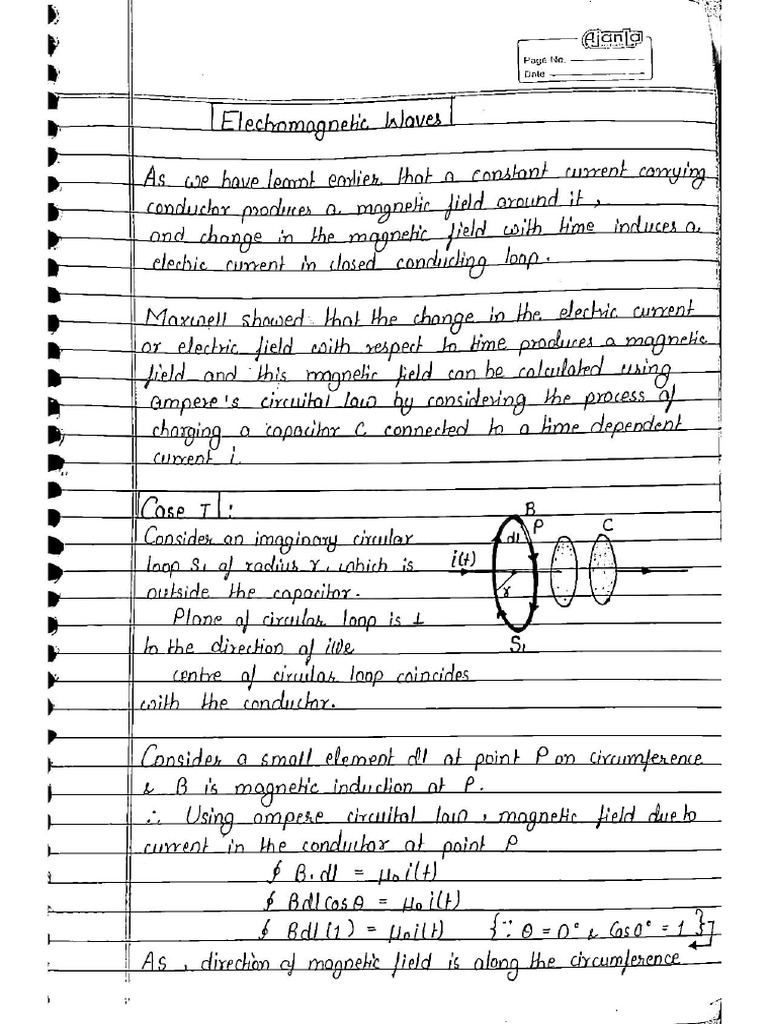 Ajanta
Page No.
Date
Electromagnetic Waves
As we have learnt earlier that a constant current carrying
conductor produces a magnetic field around it,
and change in the magnetic field with time induces a
electric current in closed conducting loop.
Maxwell showed that the change in the electric current
or electric field with respect to time produces a magnetic
field and this magnetic field can be calculated using
ampere's circuital law by considering the process of
charging a capacitor C connected to a time dependent
current i.
Case I :
Consider an imaginary circular
loop S₁ of radius r, which is
outside the capacitor.
Plane of circular loop is ⊥
to the direction of i
centre of circular loop coincides
with the conductor.
B
P
C
dl
i(t)
r
S₁
Consider a small element dl at point P on circumference
& B is magnetic induction at P.
∴ Using ampere circuital law, magnetic field due to
current in the conductor at point P
∮ B.dl = μ₀i(t)
∮ Bdl cos θ = μ₀i(t)
∮ Bdl(1) = μ₀i(t) {∵ θ = 0° & Cos0° = 1}
As, direction of magnetic field is along the circumference